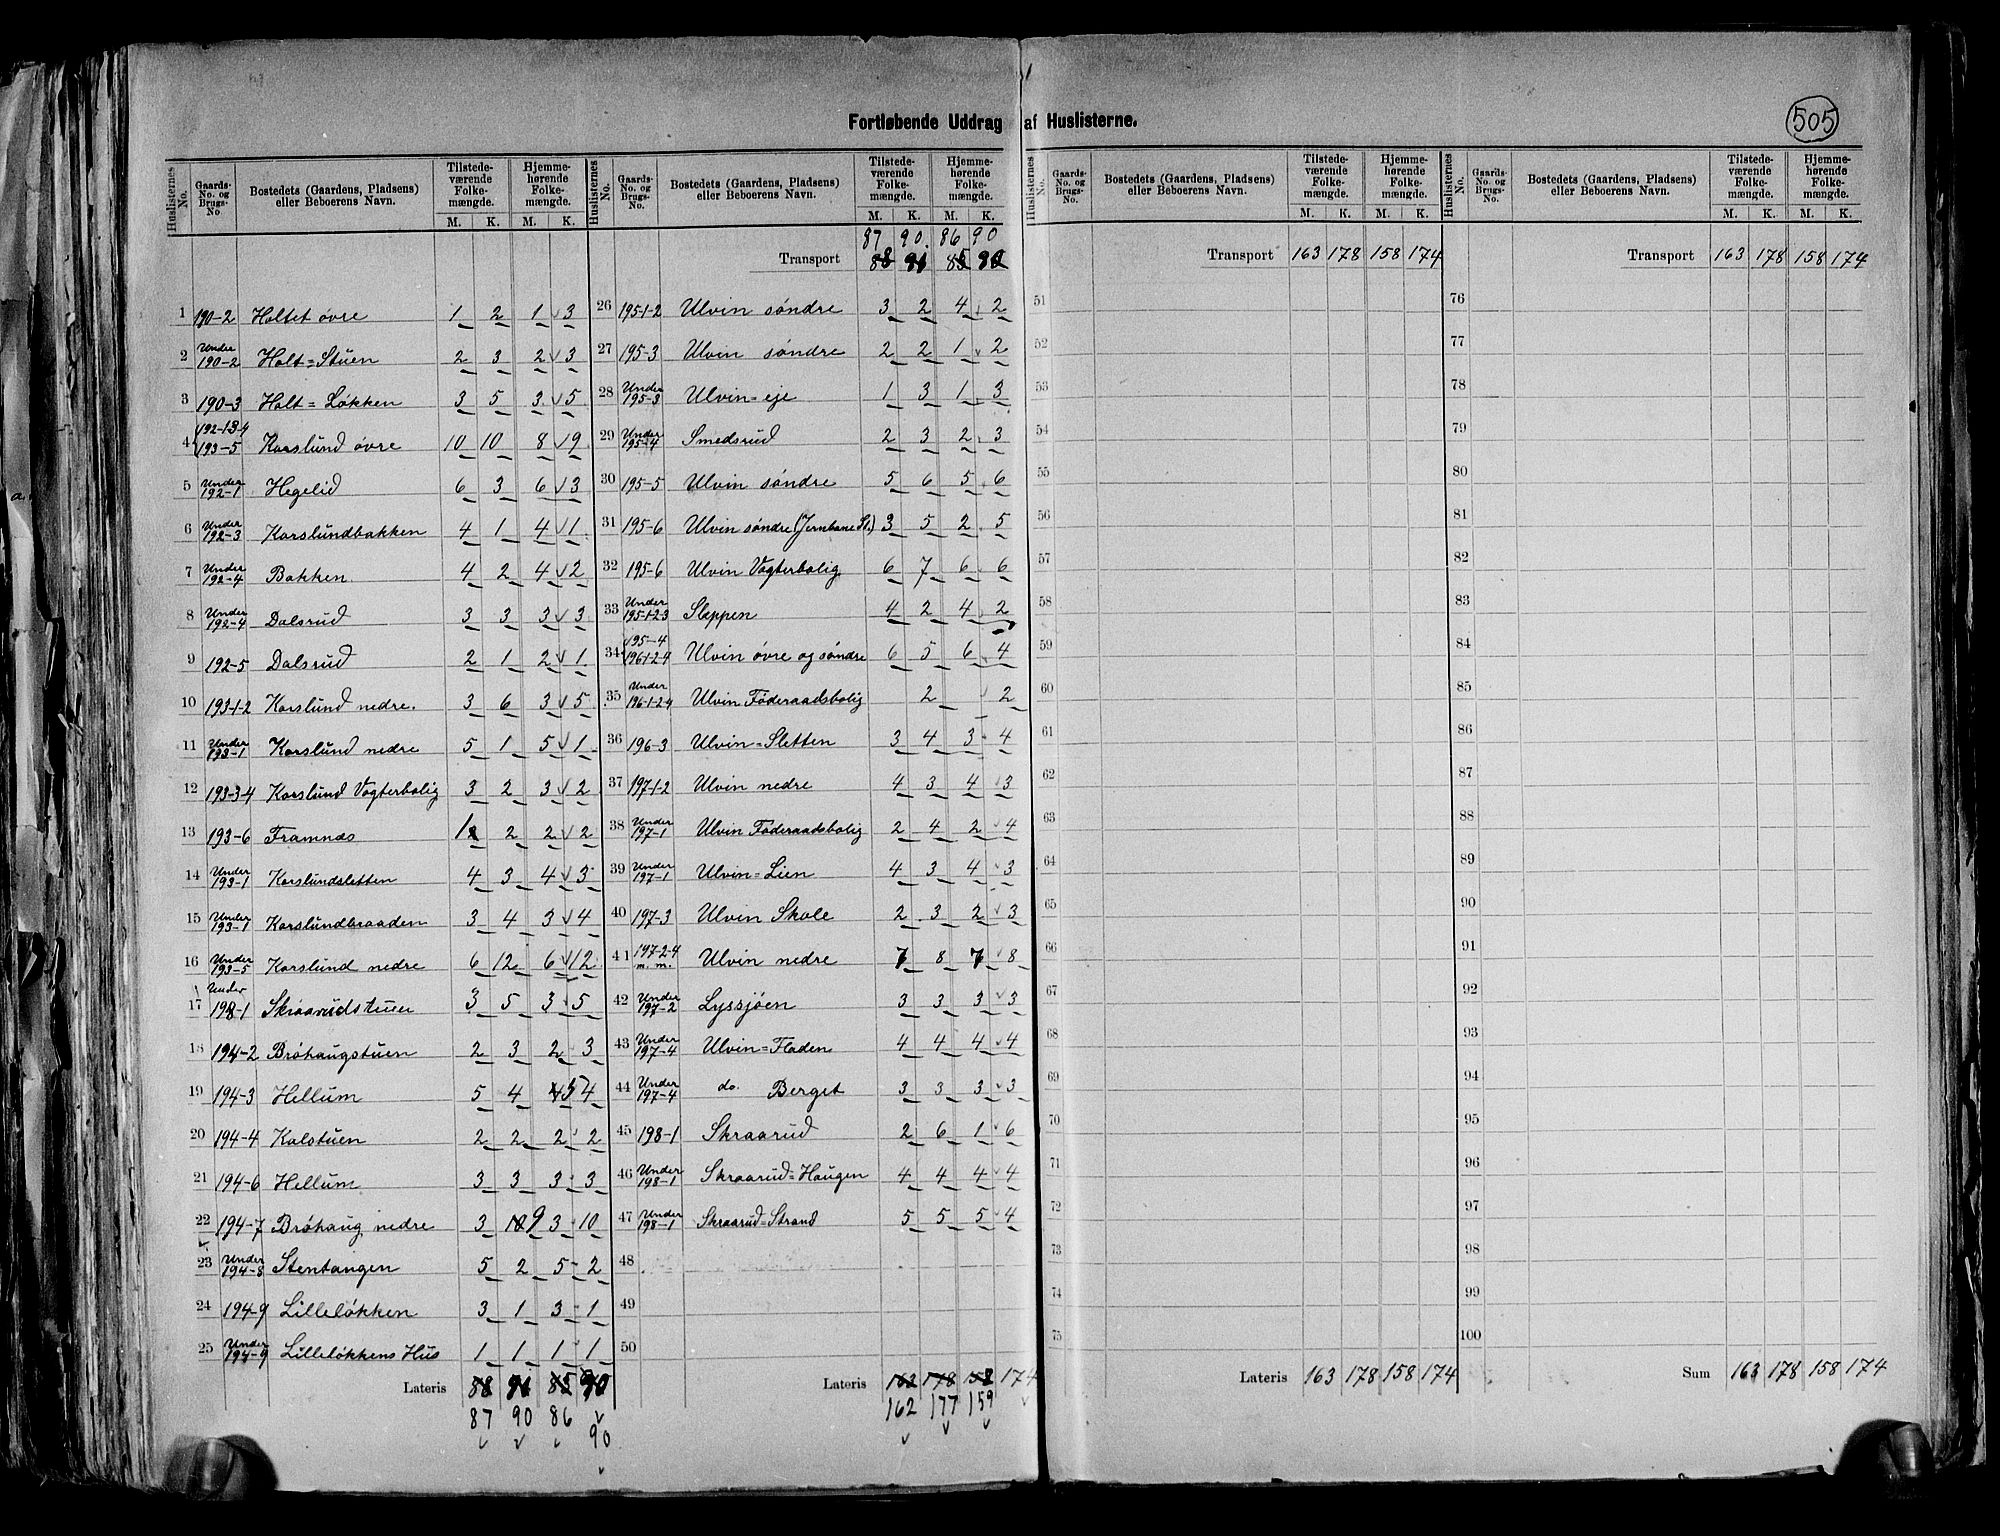 505
Fortløbende Uddrag af Huslisterne.
Huslisternes No. | Gaards-No. og Brugs-No. | Bostedets (Gaardens, Pladsens) eller Beboerens Navn. | Tilstedeværende Folkemængde. M. K. | Hjemmehørende Folkemængde. M. K.
1 190-2 Holtet øvre 1 2 1 3
2 Under 190-2 Holt=Stuen 2 3 2 3
3 190-3 Holt=Løkken 3 5 3 5
4 192-1 3-4 193-5 Korslund øvre 10 10 8 9
5 Under 192-1 Hegelid 6 3 6 3
6 Under 192-3 Korslundbakken 4 1 4 1
7 Under 192-4 Bakken 4 2 4 2
8 Under 192-4 Dalsrud 3 3 3 3
9 192-5 Dalsrud 2 1 2 1
10 193-1-2 Korslund nedre. 3 6 3 5
11 Under 193-1 Korslund nedre 5 1 5 1
12 193-3-4 Korslund Vogterbolig 3 2 3 2
13 193-6 Framnæs 1 2 2 2
14 Under 193-1 Korslundsletten 4 3 4 3
15 Under 193-1 Korslundbraaden 3 4 3 4
16 Under 193-5 Korslund nedre 6 12 6 12
17 Under 198-1 Skraarudstuen 3 5 3 5
18 194-2 Brøhaugstuen 2 3 2 3
19 194-3 Hellum 5 4 4 5 4
20 194-4 Kalstuen 2 2 2 2
21 194-6 Hellum 3 3 3 3
22 194-7 Brøhaug nedre 3 10 9 3 10
23 Under 194-8 Stentangen 5 2 5 2
24 194-9 Lilleløkken 3 1 3 1
25 Under 194-9 Lilleløkkens Hus 1 1 1 1
Lateris 88 91 85 90
87 90 86 90
Huslisternes No. | Gaards-No. og Brugs-No. | Bostedets (Gaardens, Pladsens) eller Beboerens Navn. | Tilstedeværende Folkemængde. M. K. | Hjemmehørende Folkemængde. M. K.
87 90. 86 90
Transport 88 91 85 90
26 195-1-2 Ulvin søndre 3 2 4 2
27 195-3 Ulvin søndre 2 2 1 2
28 Under 195-3 Ulvin=eje 1 3 1 3
29 Under 195-4 Smedsrud 2 3 2 3
30 195-5 Ulvin søndre 5 6 5 6
31 195-6 Ulvin søndre (Jernbane St.) 3 5 2 5
32 195-6 Ulvin Vogterbolig 6 7 6 6
33 Under 195-1-2-3 Sleppen 4 2 4 2
34 195-4 196-1-2-4 Ulvin øvre og søndre 6 5 6 4
35 Under 196-1-2-4 Ulvin Føderaadsbolig 2 2
36 196-3 Ulvin=Sletten 3 4 3 4
37 197-1-2 Ulvin nedre 4 3 4 3
38 Under 197-1 Ulvin Føderaadsbolig 2 4 2 4
39 Under 197-1 Ulvin=Lien 4 3 4 3
40 197-3 Ulvin Skole 2 3 2 3
41 197-2-4 m. m. Ulvin nedre 7 8 7 8
42 Under 197-2 Lyssjøen 3 3 3 3
43 Under 197-4 Ulvin=Fladen 4 4 4 4
44 Under 197-4 do. Berget 3 3 3 3
45 198-1 Skraarud 2 6 1 6
46 Under 198-1 Skraarud=Haugen 4 4 4 4
47 Under 198-1 Skraarud=Strand 5 5 5 4
48
49
50
Lateris 163 178 158 174
162 177 159
Huslisternes No. | Gaards-No. og Brugs-No. | Bostedets (Gaardens, Pladsens) eller Beboerens Navn. | Tilstedeværende Folkemængde. M. K. | Hjemmehørende Folkemængde. M. K.
Transport 163 178 158 174
51
52
53
54
55
56
57
58
59
60
61
62
63
64
65
66
67
68
69
70
71
72
73
74
75
Lateris 163 178 158 174
Huslisternes No. | Gaards-No. og Brugs-No. | Bostedets (Gaardens, Pladsens) eller Beboerens Navn. | Tilstedeværende Folkemængde. M. K. | Hjemmehørende Folkemængde. M. K.
Transport 163 178 158 174
76
77
78
79
80
81
82
83
84
85
86
87
88
89
90
91
92
93
94
95
96
97
98
99
100
Sum 163 178 158 174